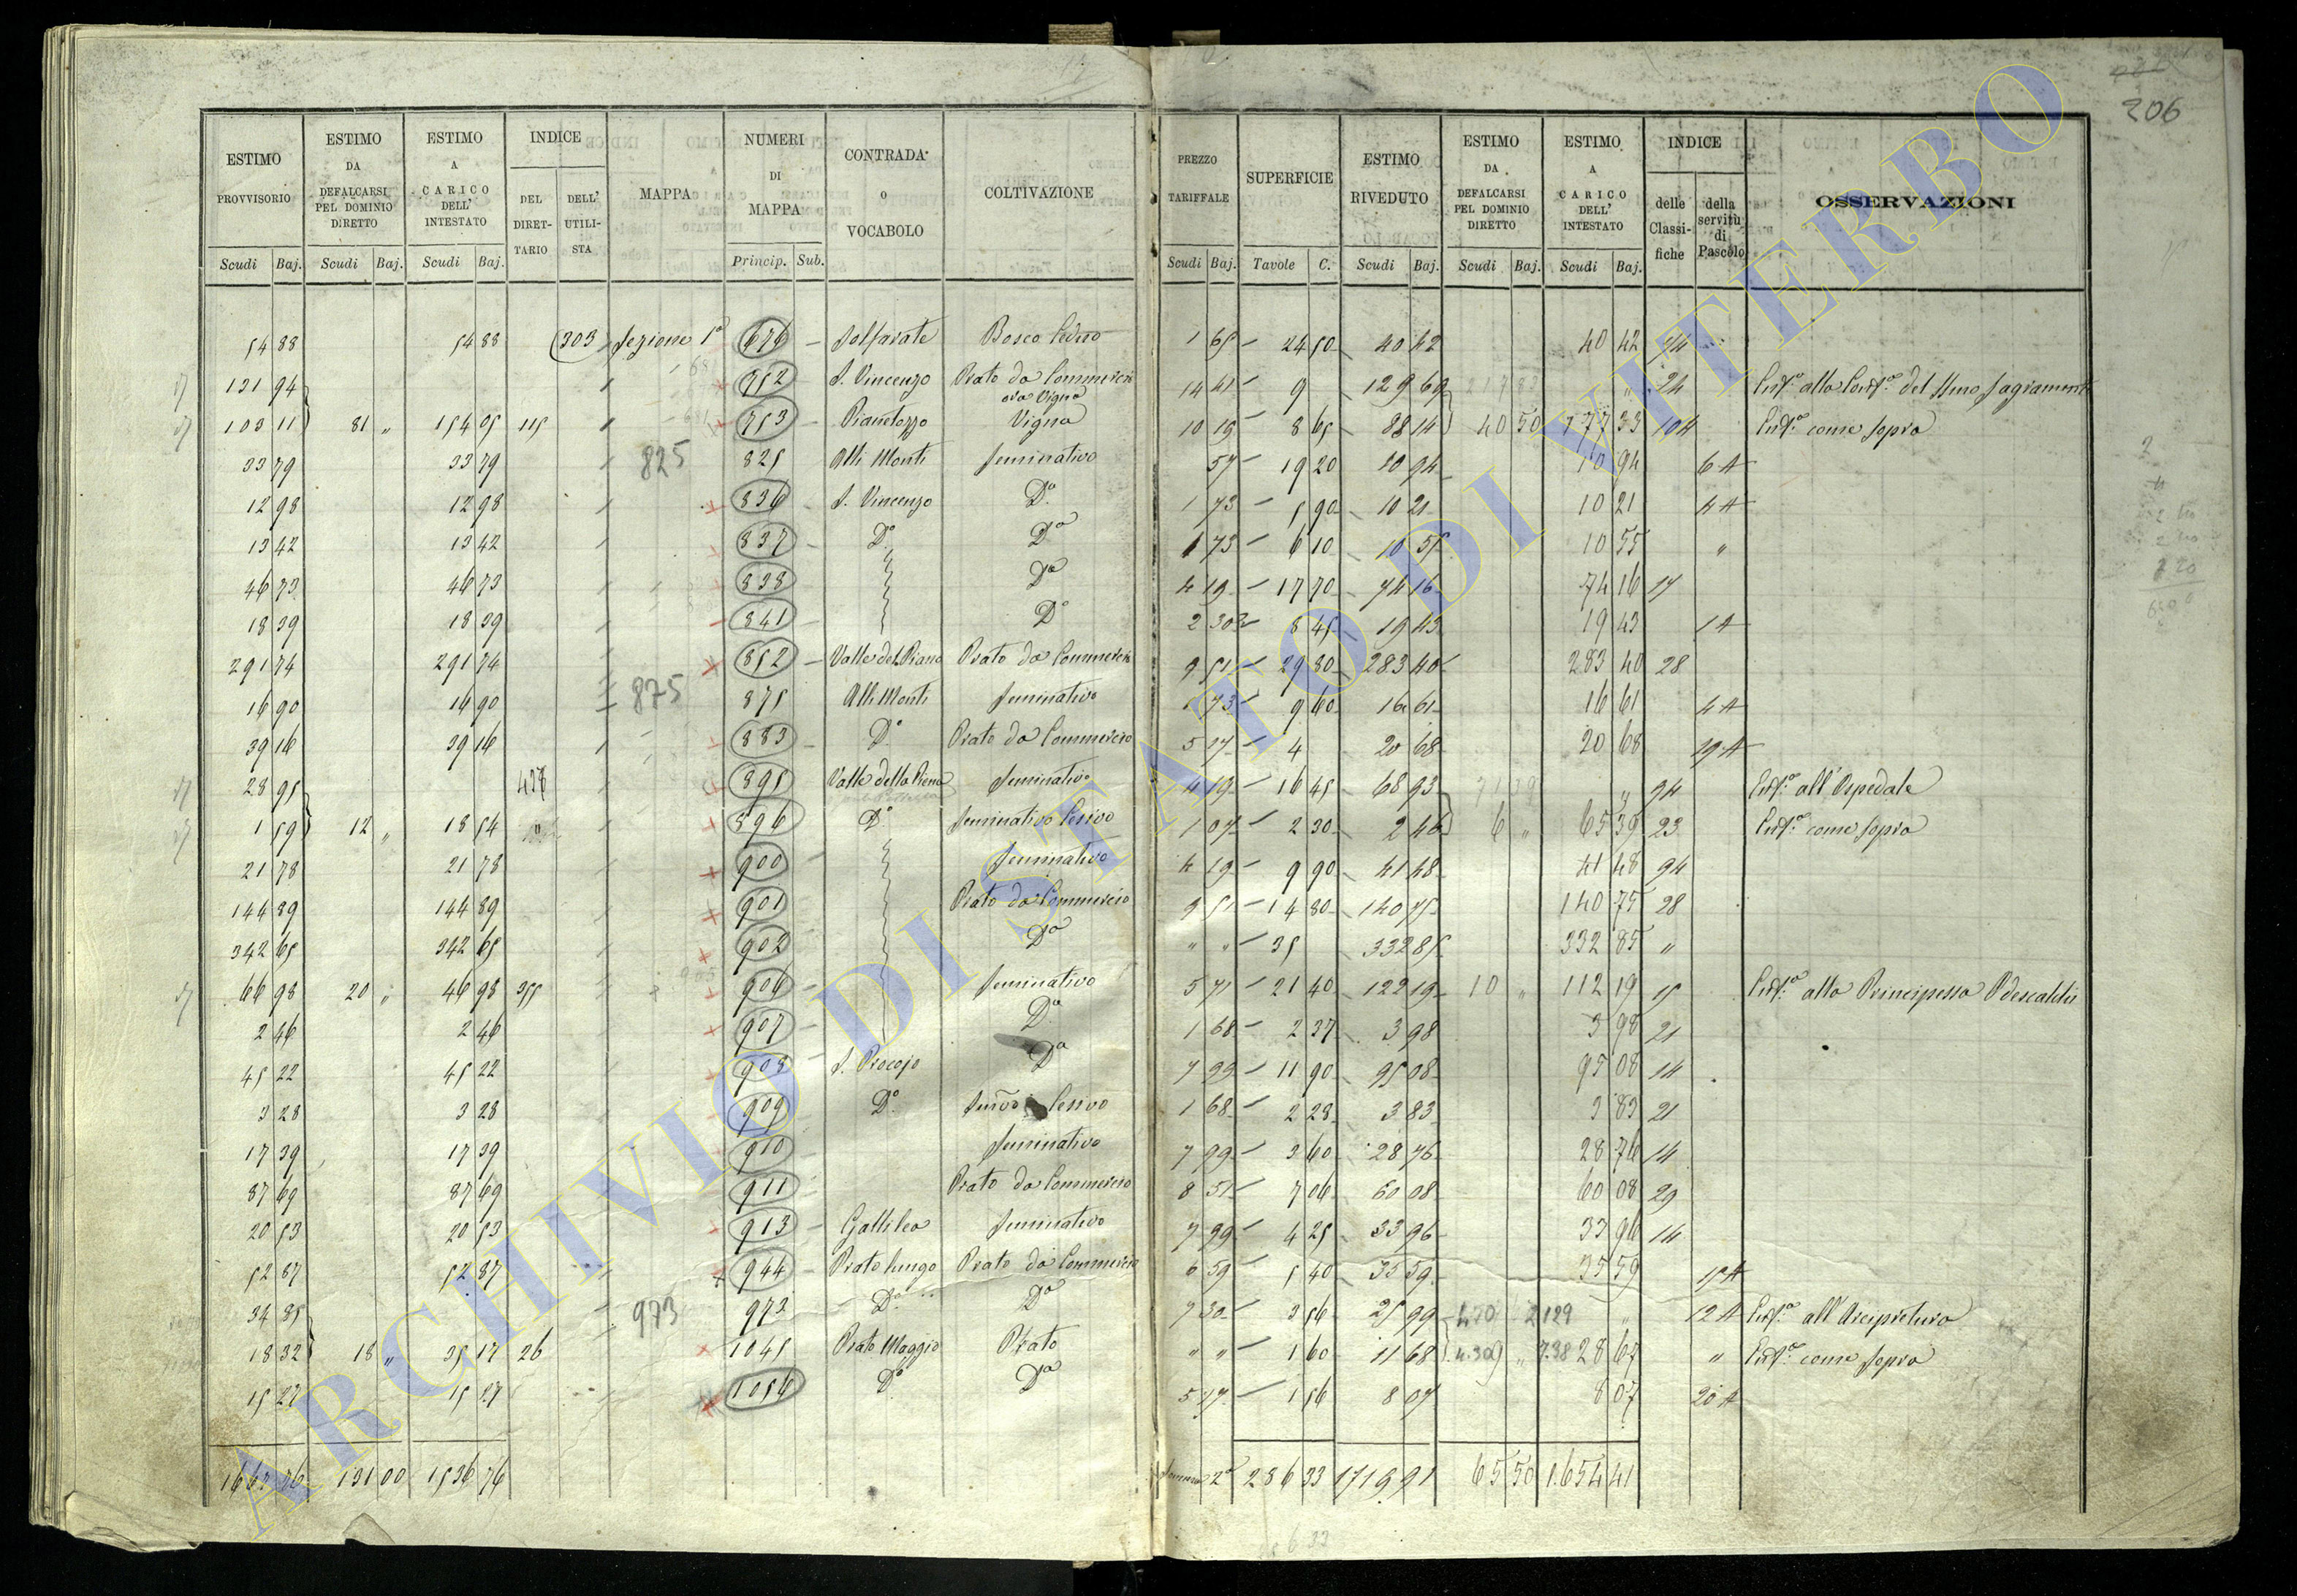 206
ESTIMO PROVVISORIO | ESTIMO DA DEFALCARSI PEL DOMINIO DIRETTO | ESTIMO A CARICO DELL' INTESTATO | INDICE DEL DIRETTARIO | DELL' UTILISTA | MAPPA | NUMERI DI MAPPA | CONTRADA o VOCABOLO | COLTIVAZIONE | PREZZO TARIFFALE | SUPERFICIE | ESTIMO RIVEDUTO | ESTIMO DA DEFALCARSI PEL DOMINIO DIRETTO | ESTIMO A CARICO DELL' INTESTATO | INDICE delle Classifiche | della servitù di Pascolo | OSSERVAZIONI
Scudi Baj. | Scudi Baj. | Scudi Baj. | Princip. Sub. | Scudi Baj. | Tavole C. | Scudi Baj. | Scudi Baj. | Scudi Baj.
54 88 | 54 88 | 303 | Sezione 1ª | 676 | Solfarate | Bosco Ceduo | 1 65 | 24 50 | 40 42 | 40 42 | 24
131 94 | 752 | S. Vincenzo | Prato da Commercio ora Vigna | 14 41 | 9 | 129 69 | " | 24
103 11 | 81 " | 154 05 | 115 | 753 | Pianetozzo | Vigna | 10 19 | 8 65 | 88 14 | 40 50 | 177 33 | 104 | come sopra
33 79 | 33 79 | 825 | 825 | Alli Monti | Seminativo | 57 | 19 20 | 10 94 | 10 94 | 6 A
12 98 | 12 98 | 836 | S. Vincenzo | Dº | 1 73 | 5 90 | 10 21 | 10 21 | 4 A
13 42 | 13 42 | 837 | Dº | Dº | 1 73 | 6 10 | 10 55 | 10 55 | "
46 73 | 46 73 | 838 | Dº | 4 19 | 17 70 | 74 16 | 74 16 | 17
18 39 | 18 39 | 841 | Dº | 2 30 | 8 45 | 19 43 | 19 43 | 1 A
291 74 | 291 74 | 852 | Valle del Piano | Prato da Commercio | 9 51 | 29 80 | 283 40 | 283 40 | 28
16 90 | 16 90 | 875 | 875 | Alli Monti | Seminativo | 1 73 | 9 60 | 16 61 | 16 61 | 4 A
39 16 | 39 16 | 883 | Dº | Prato da Commercio | 5 17 | 4 | 20 68 | 20 68 | 19 A
28 95 | 895 | Valle della Piena | Seminativo | 4 19 | 16 45 | 68 93 | " | 94 | all'Ospedale
1 59 | 12 " | 18 54 | " | 896 | Dº | Seminativo Cesivo | 1 07 | 2 30 | 2 46 | 6 " | 65 39 | 23 | come sopra
21 78 | 21 78 | 900 | Seminativo | 4 19 | 9 90 | 41 48 | 41 48 | 94
144 89 | 144 89 | 901 | Prato da Commercio | 9 51 | 14 80 | 140 75 | 140 75 | 28
342 65 | 342 65 | 902 | Dº | " " | 35 | 332 85 | 332 85 | "
66 98 | 20 " | 46 98 | 355 | 906 | Seminativo | 5 71 | 21 40 | 122 19 | 10 " | 112 19 | 15 | alla Principessa Odescalchi
2 46 | 2 46 | 907 | Dº | 1 68 | 2 37 | 3 98 | 3 98 | 21
45 22 | 45 22 | 908 | S. Procojo | Dº | 7 99 | 11 90 | 95 08 | 95 08 | 14
3 28 | 3 28 | 909 | Dº | Cesivo | 1 68 | 2 28 | 3 83 | 3 83 | 21
17 39 | 17 39 | 910 | Seminativo | 7 99 | 3 60 | 28 76 | 28 76 | 14
87 69 | 87 69 | 911 | Prato da Commercio | 8 51 | 7 06 | 60 08 | 60 08 | 29
20 53 | 20 53 | 913 | Gallileo | Seminativo | 7 99 | 4 25 | 33 96 | 33 96 | 14
52 87 | 52 87 | 944 | Prato lungo | Prato da Commercio | 6 59 | 5 40 | 35 59 | 35 59 | 15 A
34 85 | 973 | 973 | Dº | Dº | 7 30 | 3 56 | 25 99 | " | 12 A | all'Arcipretura
18 32 | 18 " | 35 17 | 26 | 1045 | Prato Maggio | Prato | " " | 1 60 | 11 68 | 28 67 | " | come sopra
15 27 | 15 27 | 1056 | Dº | Dº | 5 17 | 1 56 | 8 07 | 8 07 | 20 A
1667 76 | 131 00 | 1536 76 | 286 33 | 1719 91 | 65 50 | 1654 41
ARCHIVIO DI STATO DI VITERBO